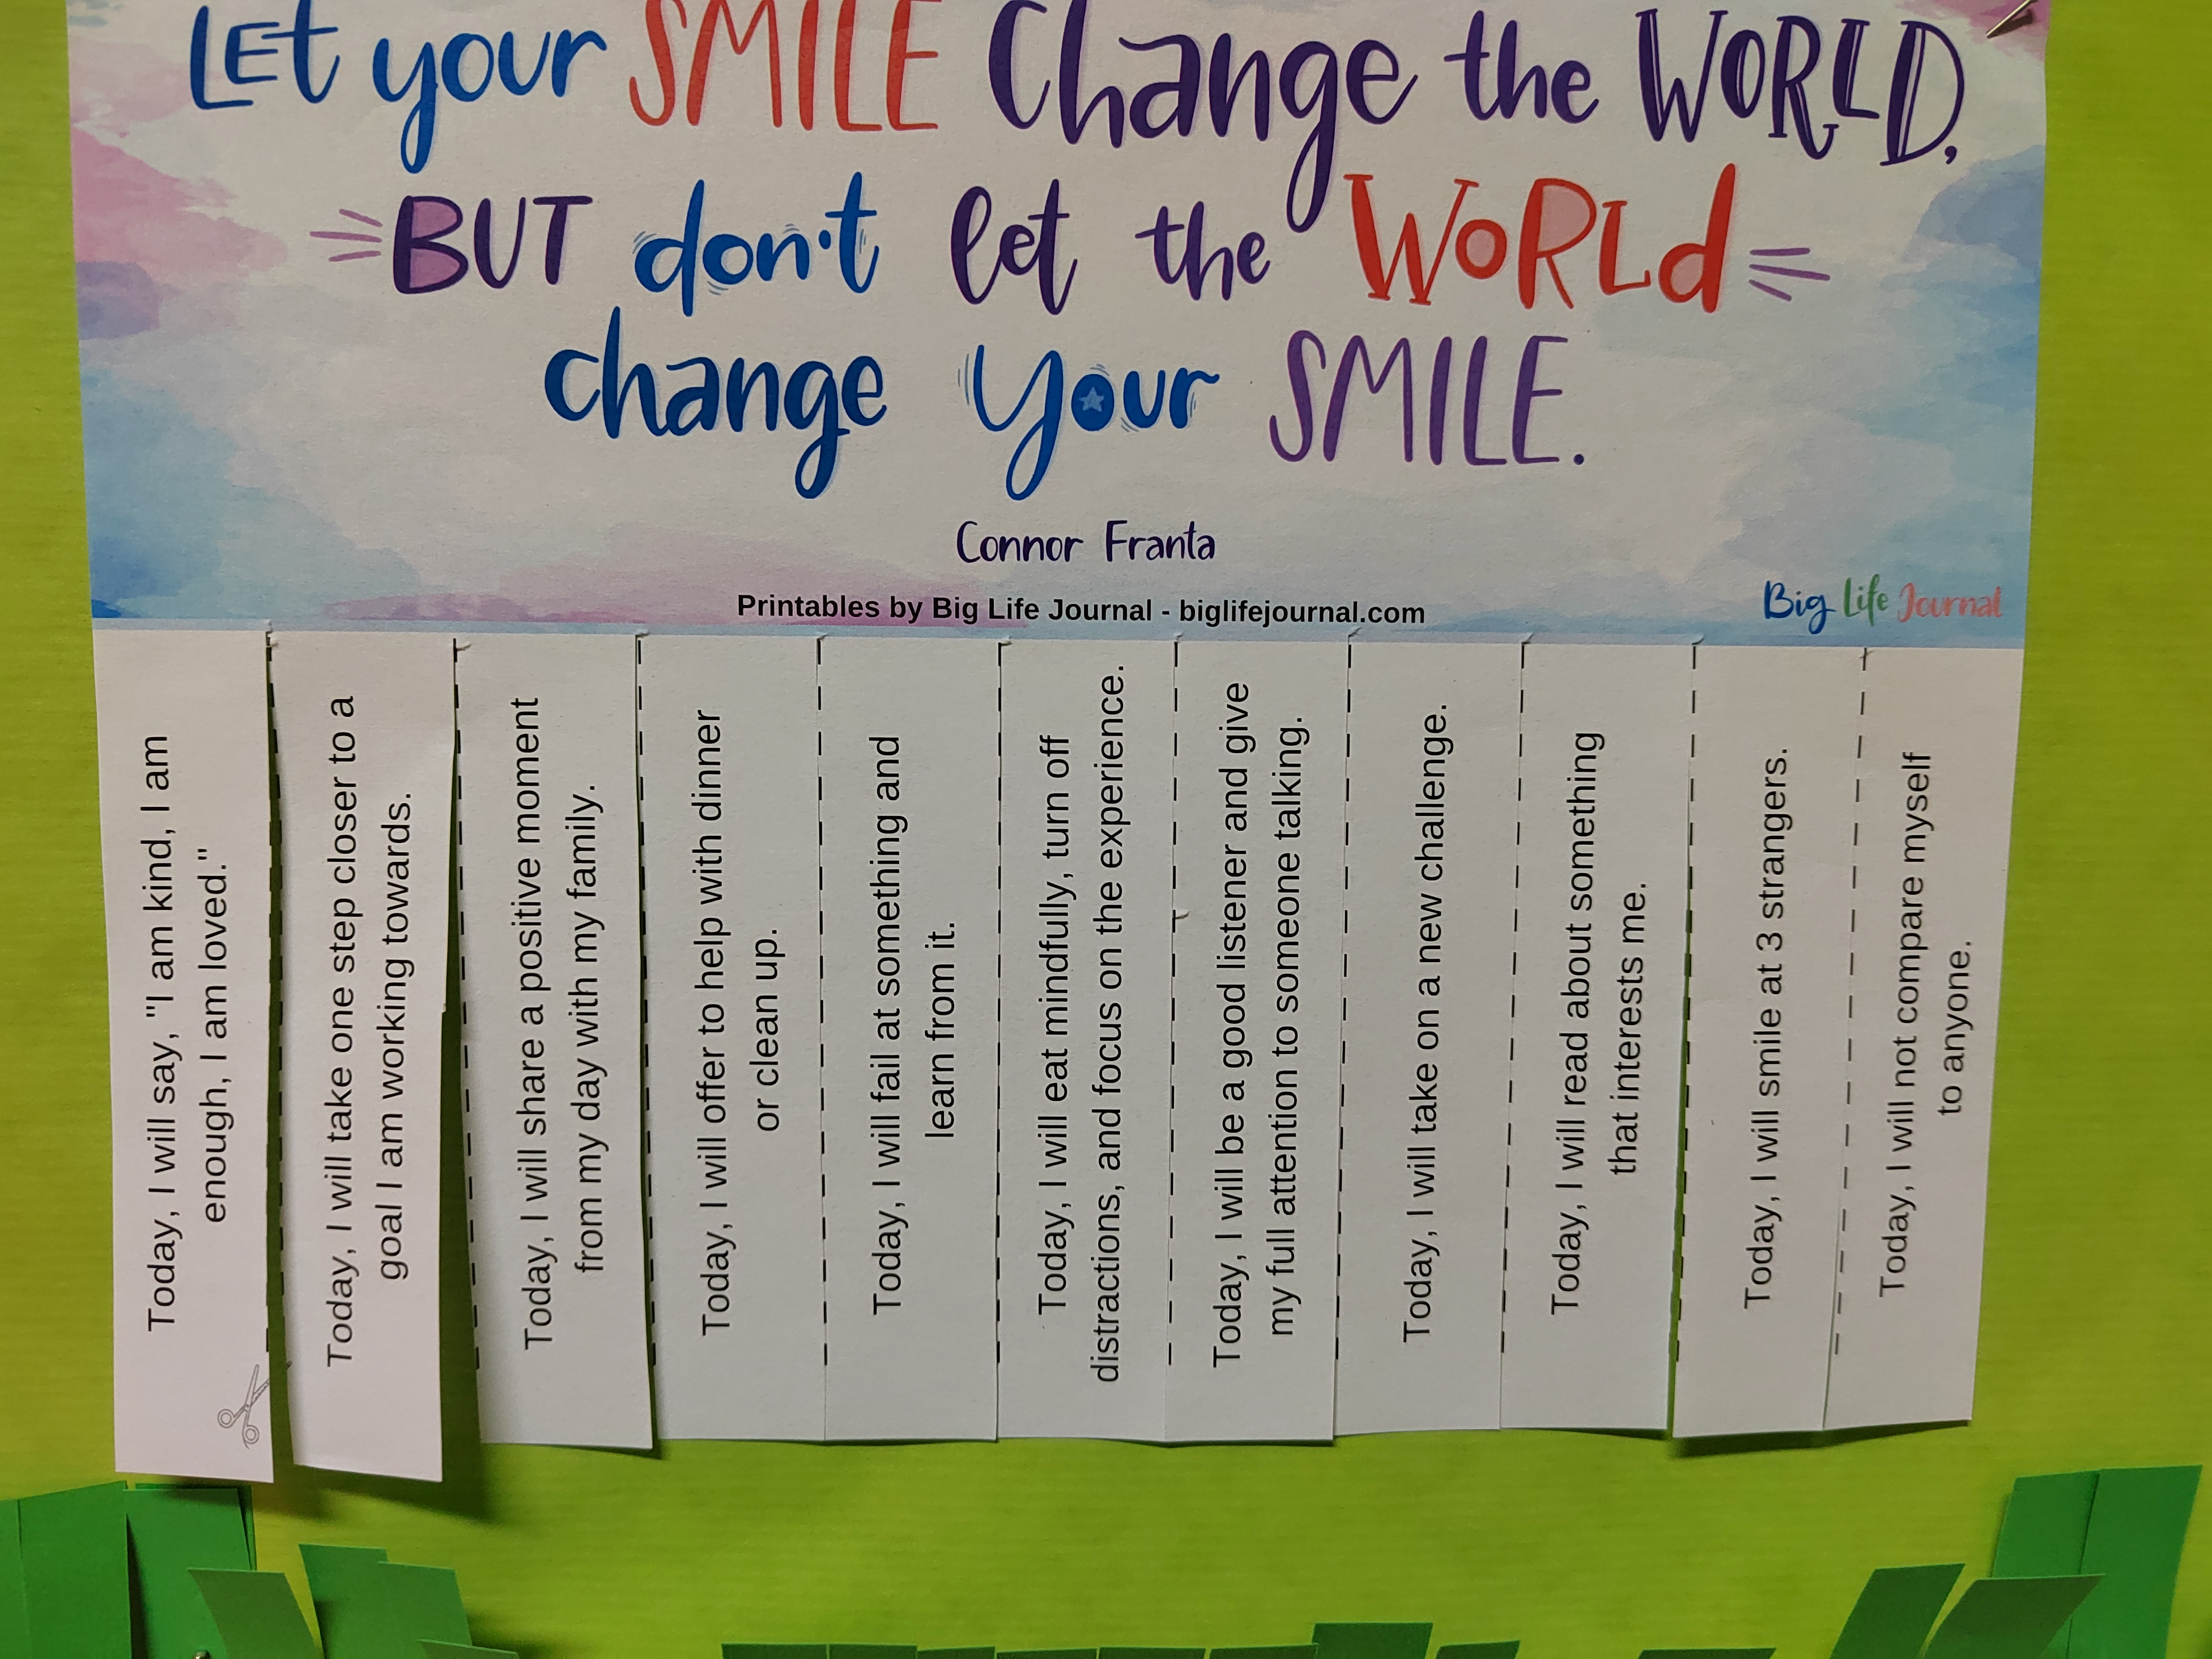 LEt your SMILE Change the WORLD,
BUT don't let the WoRLd
change your SMILE.
Connor Franta
Printables by Big Life Journal - biglifejournal.com
Big Life Journal
Today, I will say, "I am kind, I am
enough, I am loved."
Today, I will take one step closer to a
goal I am working towards.
Today, I will share a positive moment
from my day with my family.
Today, I will offer to help with dinner
or clean up.
Today, I will fail at something and
learn from it.
Today, I will eat mindfully, turn off
distractions, and focus on the experience.
Today, I will be a good listener and give
my full attention to someone talking.
Today, I will take on a new challenge.
Today, I will read about something
that interests me.
Today, I will smile at 3 strangers.
Today, I will not compare myself
to anyone.